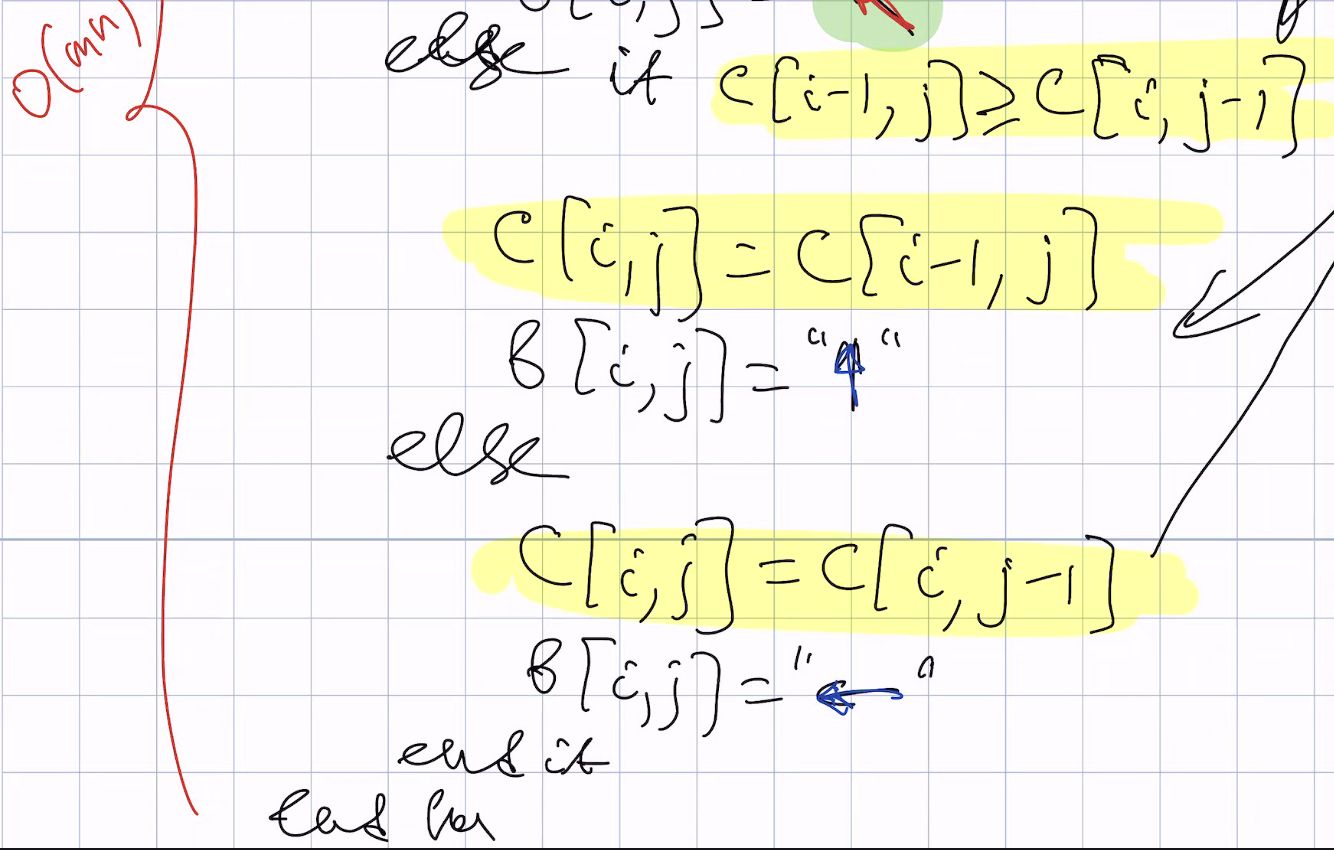 O(mn)
else if C[i-1, j] ≥ C[i, j-1]
C[i, j] = C[i-1, j]
B[i, j] = "↑"
else
C[i, j] = C[i, j-1]
B[i, j] = "←"
end if
end for